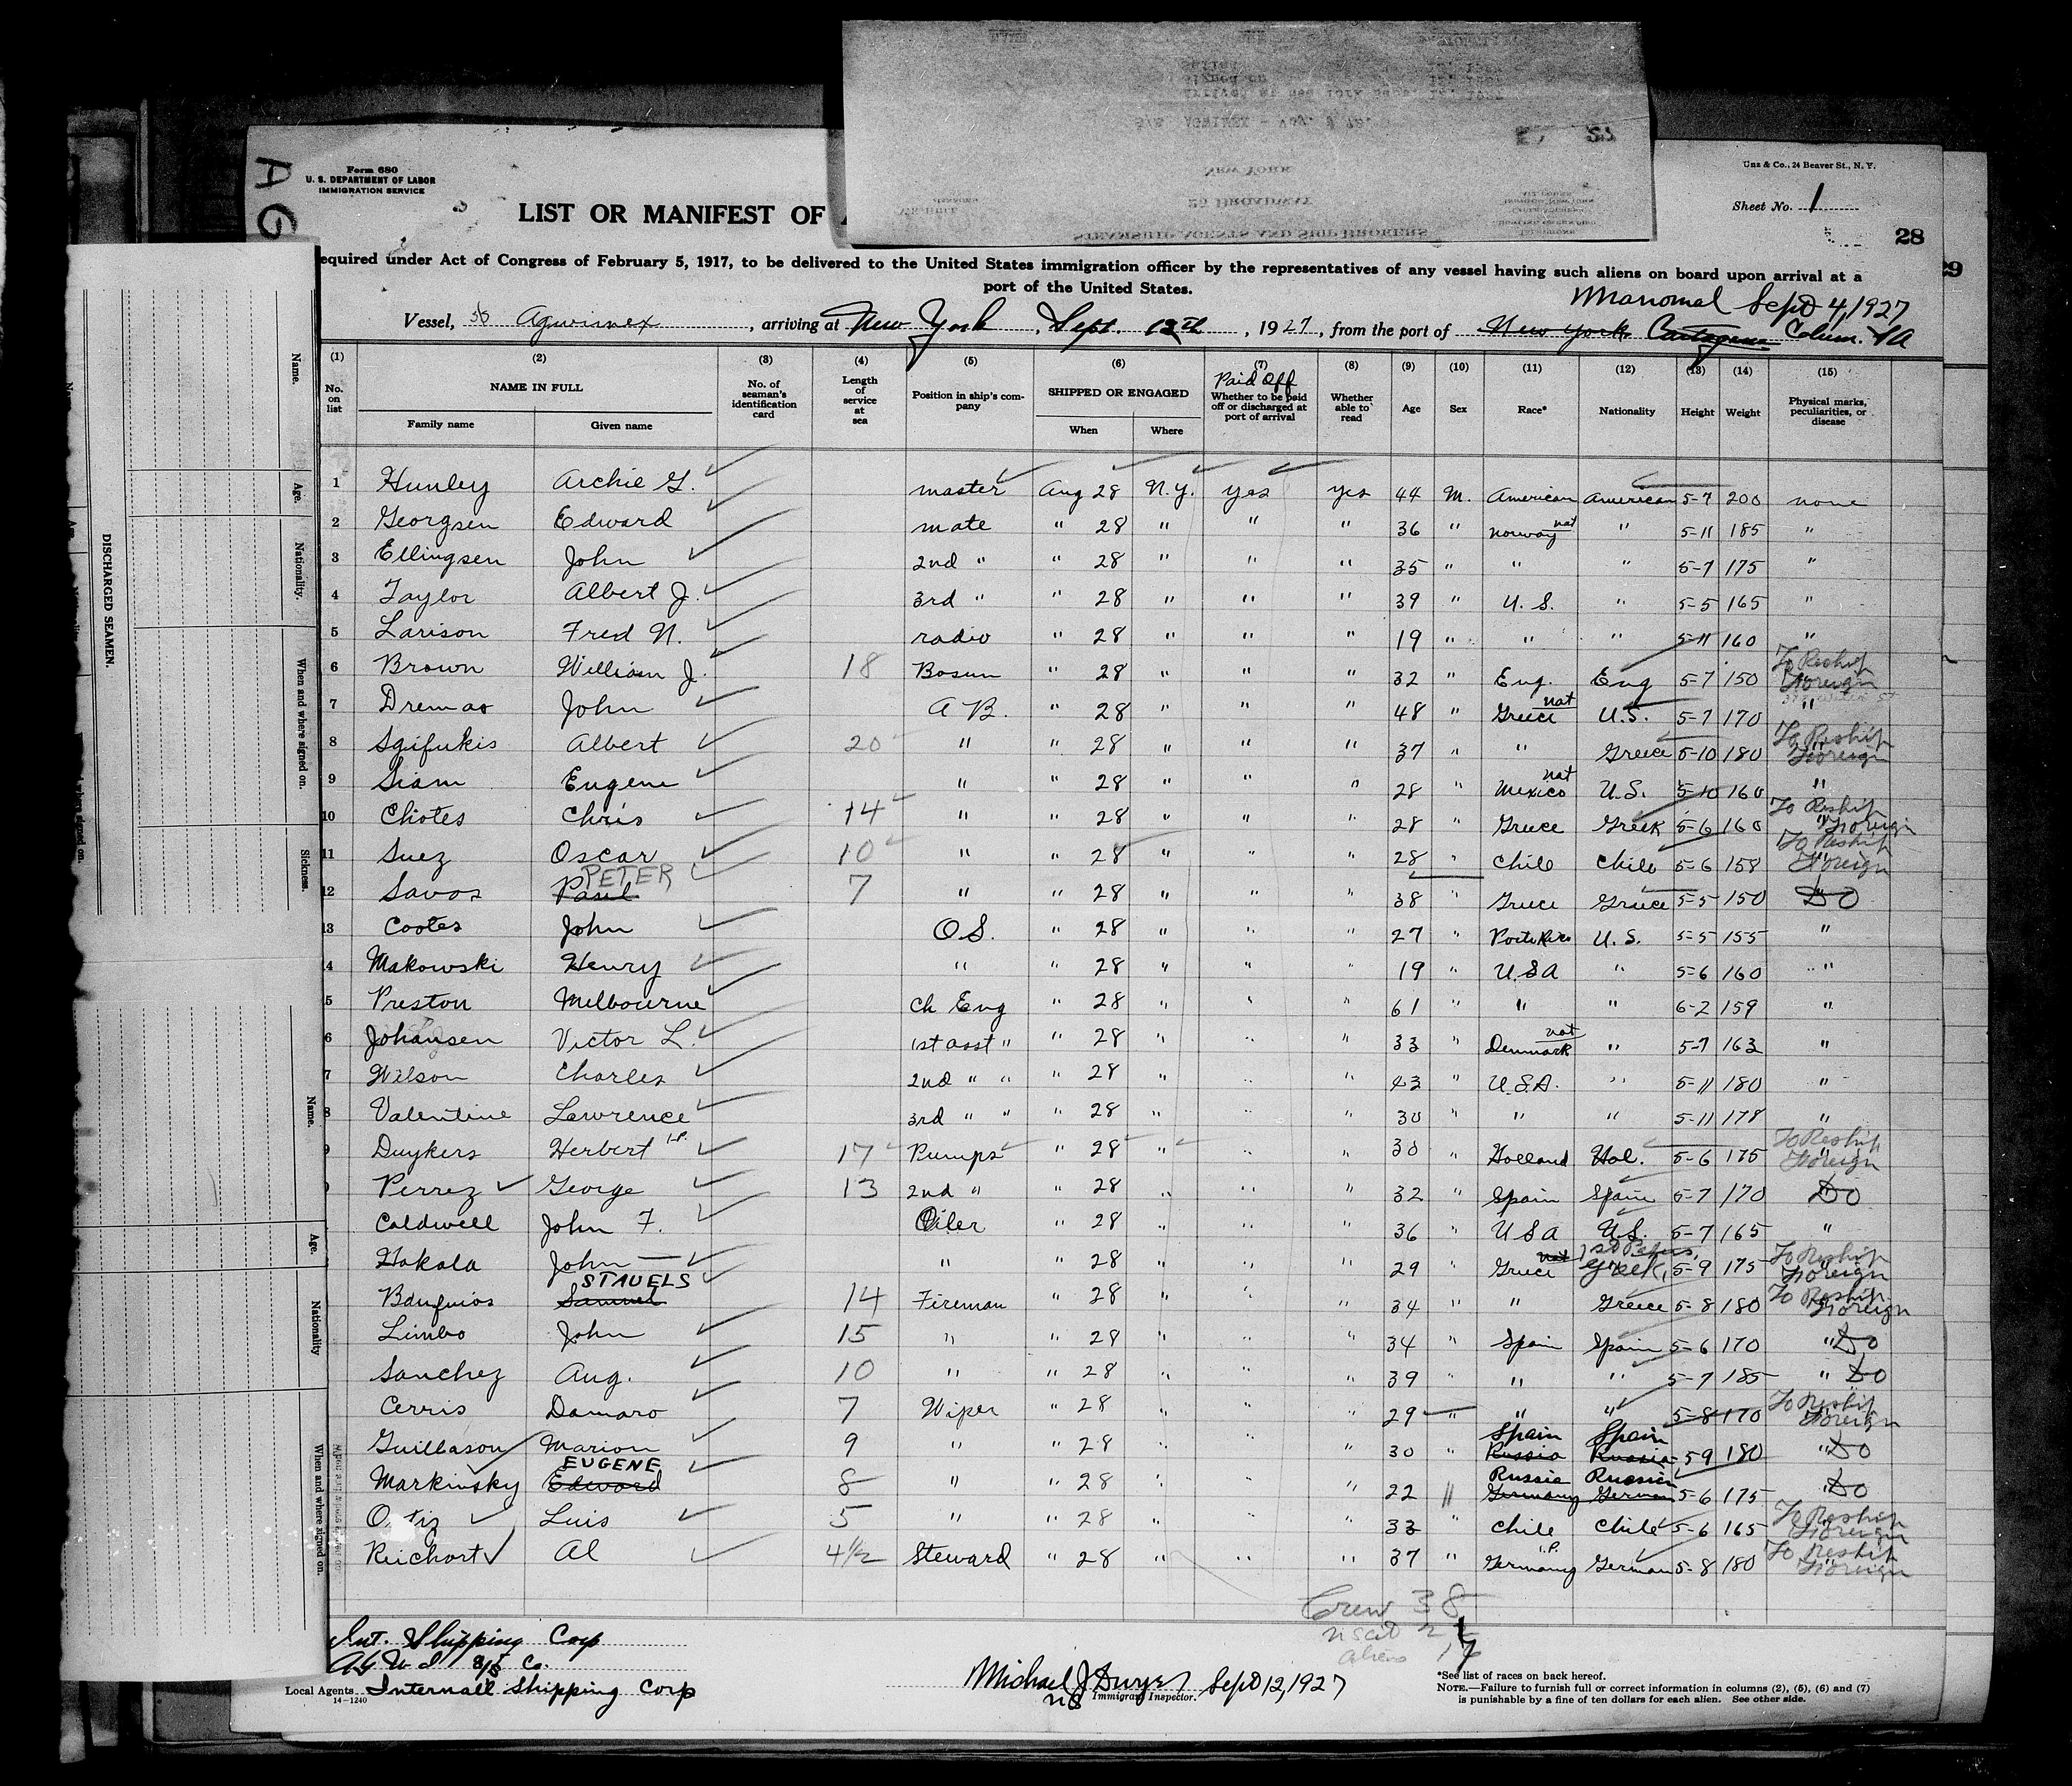 Form 680
U. S. DEPARTMENT OF LABOR
IMMIGRATION SERVICE
Unz & Co., 24 Beaver St., N. Y.
Sheet No. 1
28
29
LIST OR MANIFEST OF
equired under Act of Congress of February 5, 1917, to be delivered to the United States immigration officer by the representatives of any vessel having such aliens on board upon arrival at a
port of the United States.
Sept 4, 1927
Vessel, SS Agwisnex, arriving at New York, Sept. 12th, 1927, from the port of New York Cartagena Colum. SA
(1) (2) (3) (4) (5) (6) (7) (8) (9) (10) (11) (12) (13) (14) (15)
No. on list NAME IN FULL Family name Given name No. of seaman's identification card Length of service at sea Position in ship's company SHIPPED OR ENGAGED When Where Paid Off Whether to be paid off or discharged at port of arrival Whether able to read Age Sex Race* Nationality Height Weight Physical marks, peculiarities, or disease
1 Hunley Archie G. master Aug 28 N.Y. Yes yes 44 M. American American 5-7 200 none
2 Georgsen Edward mate " 28 " " " 36 " Norway nat " 5-11 185 "
3 Ellingsen John 2nd " " 28 " " " 35 " " " 5-7 175 "
4 Taylor Albert J. 3rd " " 28 " " " 39 " U. S. " 5-5 165 "
5 Larison Fred N. radio " 28 " " " 19 " " " 5-11 160 "
6 Brown William J. 18 Bosun " 28 " " " 32 " Eng. Eng 5-7 150 To Reship Foreign
7 Dremas John A B. " 28 " " " 48 " Greece nat U.S. 5-7 170 "
8 Sgifukis Albert 20 " " 28 " " " 37 " " Greece 5-10 180 To Reship Foreign
9 Siam Eugene " " 28 " " " 28 " Mexico nat U.S. 5-10 160 "
10 Chotes Chris 14 " " 28 " " " 28 " Greece Greek 5-6 160 To Reship Foreign
11 Suez Oscar 10 " " 28 " " " 28 " Chile Chile 5-6 158 To Reship Foreign
12 Savos Paul PETER 7 " " 28 " " " 38 " Greece Greece 5-5 150 DO
13 Cootes John O.S. " 28 " " " 27 " Porto Rico U. S. 5-5 155 "
4 Makowski Henry " " 28 " " " 19 " USA " 5-6 160 "
5 Preston Melbourne Ch Eng " 28 " " " 61 " " " 6-2 159 "
6 Johansen Victor L. 1st asst " " 28 " " " 33 " Denmark nat " 5-7 163 "
7 Wilson Charles 2nd " " " 28 " " " 43 " U.S.A. " 5-11 180 "
8 Valentine Lawrence 3rd " " " 28 " " " 30 " " " 5-11 178 "
9 Duykers Herbert 17 Pumps " 28 " " " 30 " Holland Hol. 5-6 175 To Reship Foreign
Perrez George 13 2nd " " 28 " " " 32 " Spain Spain 5-7 170 DO
Caldwell John F. Oiler " 28 " " " 36 " USA U.S. 5-7 165 "
Hakala John " " 28 " " " 29 " Greece nat 1st Papers Greek 5-9 175 To Reship Foreign
Samuel STAVELS 14 Fireman " 28 " " " 34 " " Greece 5-8 180 To Reship Foreign
Limbo John 15 " " 28 " " " 34 " Spain Spain 5-6 170 " DO
Sanchez Aug. 10 " " 28 " " " 39 " " " 5-7 185 " DO
Cerris Damaro 7 Wiper " 28 " " " 29 " " " 5-8 170 To Reship Foreign
Guillason Marion 9 " " 28 " " " 30 " Russia Spain Russia Spain 5-9 180 " DO
Markinsky Edward EUGENE 8 " " 28 " " " 22 " Germany Russia German Russia 5-6 175 " DO
Luis 5 " " 28 " " " 33 " Chile Chile 5-6 165 To Reship Foreign
Reichart Al 4½ Steward " 28 " " " 37 " Germany German 5-8 180 To Reship Foreign
Crew 38
aliens 17
Int. Shipping Corp
AGWI S/S Co.
Local Agents Internatl Shipping Corp
14-1240
Michael J Dwyer Sept 12, 1927
Immigrant Inspector.
*See list of races on back hereof.
NOTE.—Failure to furnish full or correct information in columns (2), (5), (6) and (7)
is punishable by a fine of ten dollars for each alien. See other side.
DISCHARGED SEAMEN.
Name.
Age.
Nationality.
When and where signed on.
Sickness.
Name.
Age.
Nationality
When and where signed on.